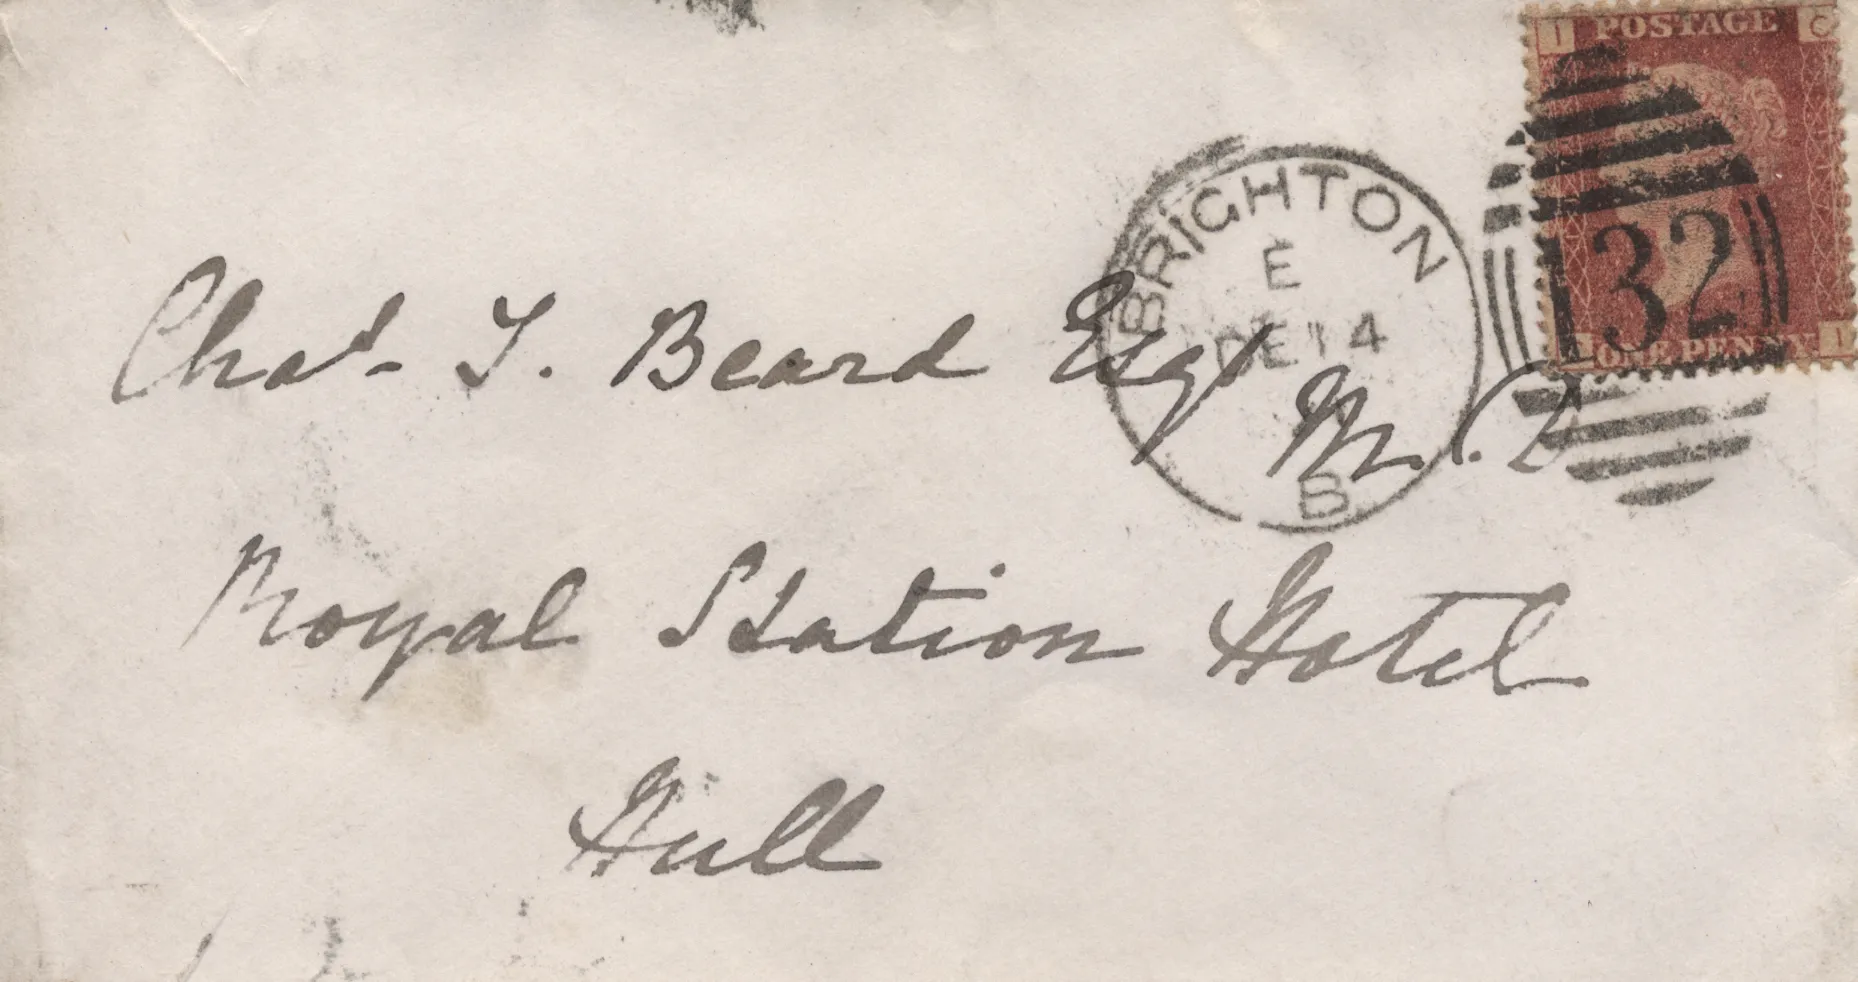 I POSTAGE C
BRIGHTON
E
DE 14
B
132
ONE PENNY I
Chas. T. Beard Esqr M.D
Royal Station Hotel
Hull